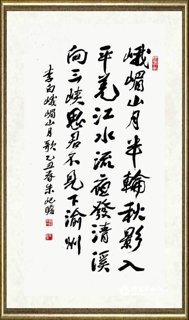 峨嵋山月半輪秋影入
平羌江水流夜發清溪
向三峽思君不見下渝州
李白峨嵋山月歌乙丑春朱